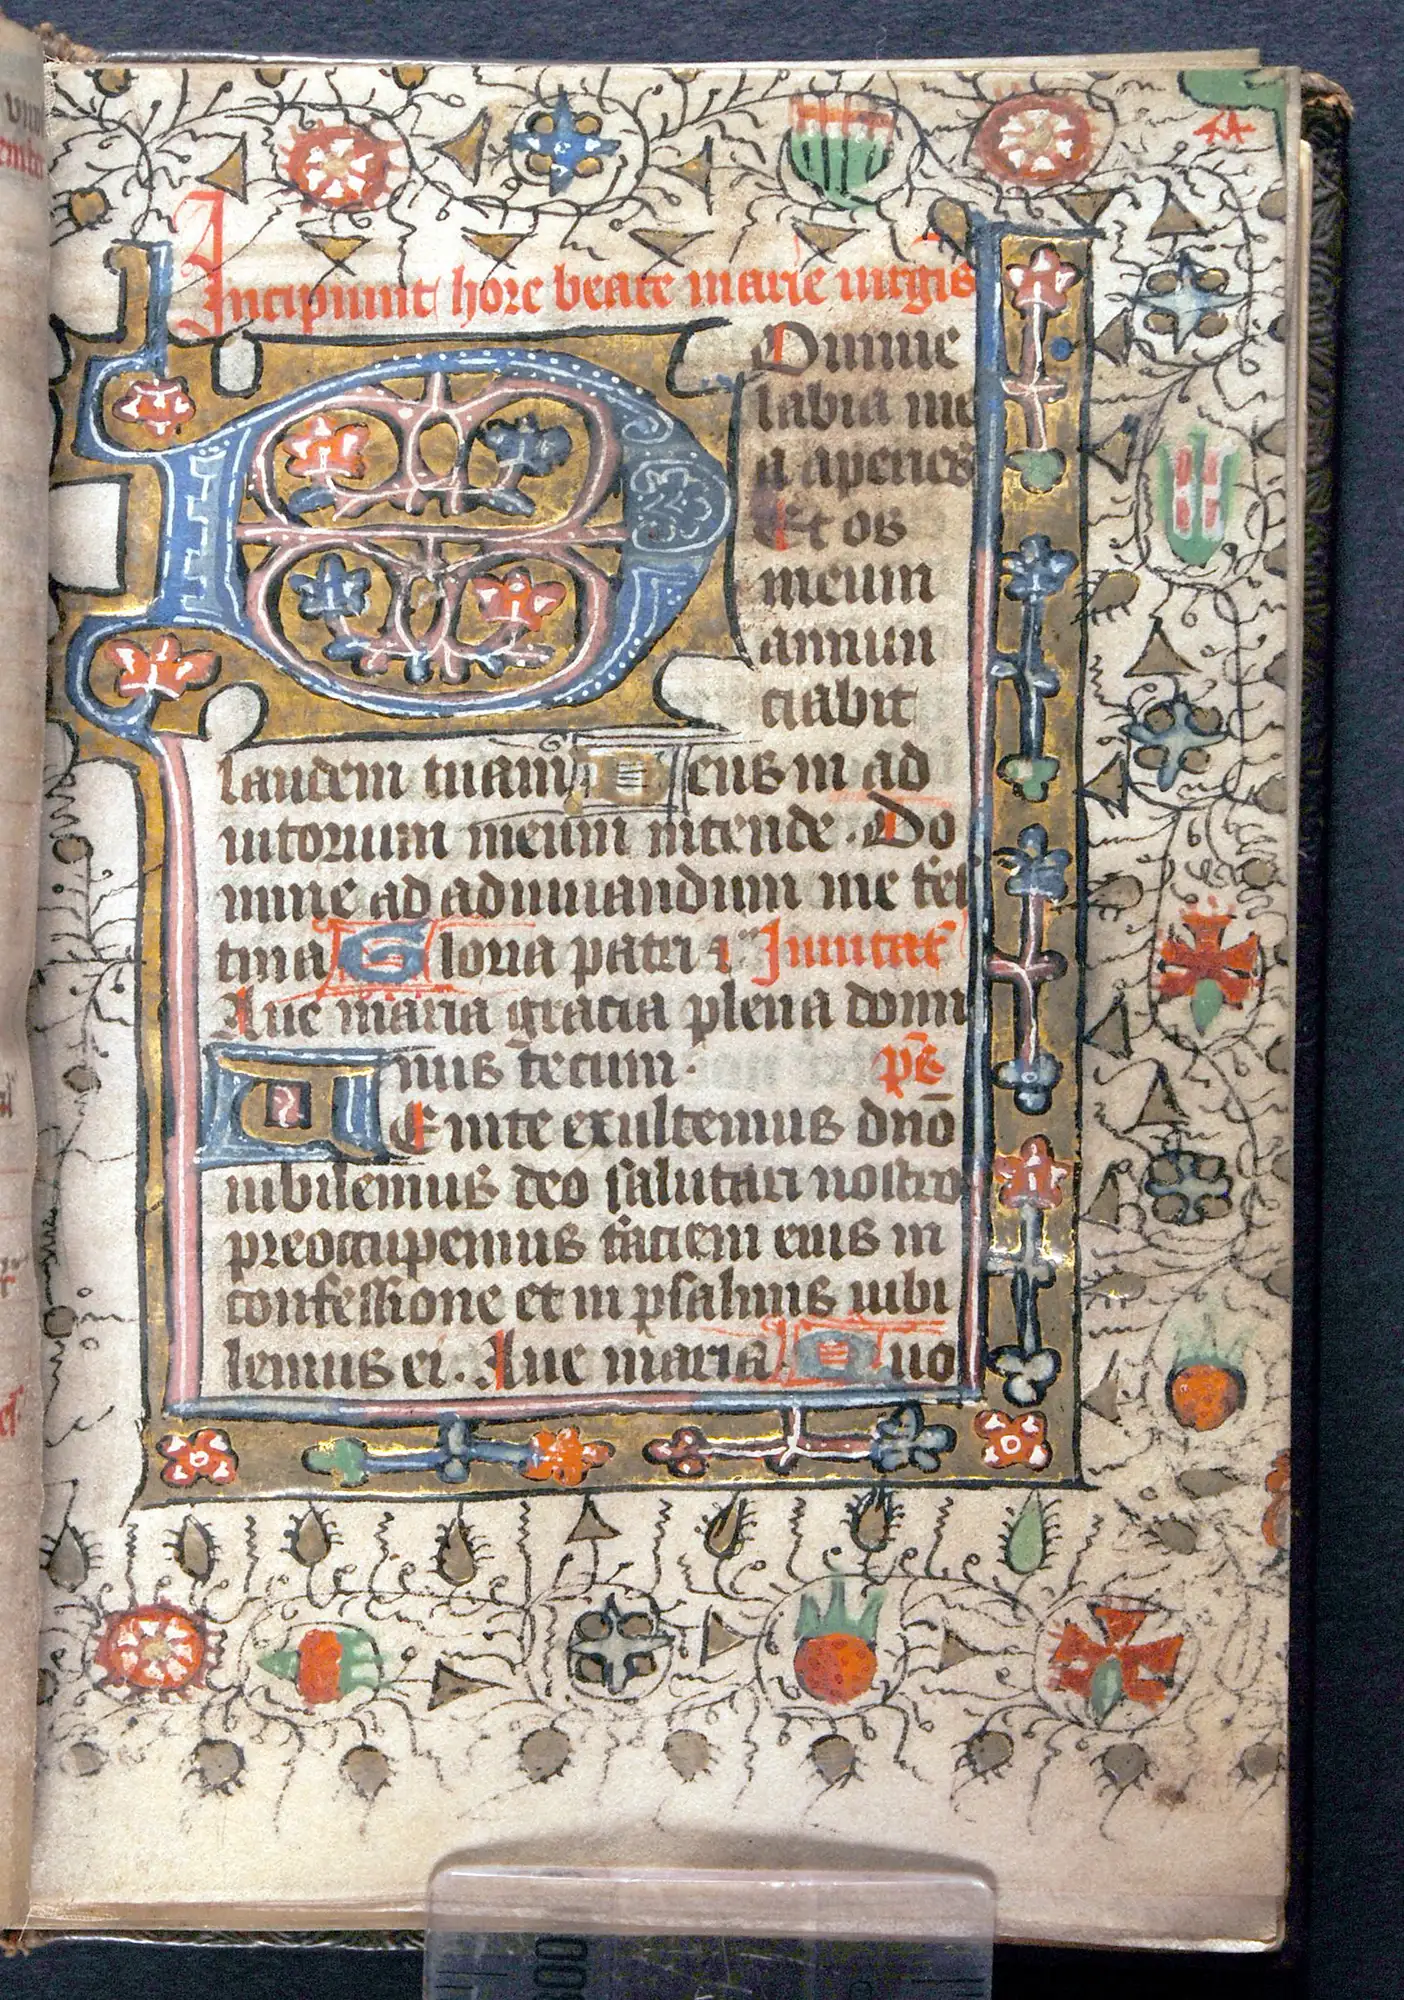 Incipiunt hore beate marie uirgis
Domine
labia me
a aperies
Et os
meum
annun
ciabit
laudem tuam Deus in ad
iutorium meum intende. Do
mine ad adiuuandum me fes
tina Gloria patri ⁊ Inuitat
Aue maria gracia plena domi
nus tecum. ps̄
UEnite exultemus dn̄o
iubilemus deo salutari nostro
preoccupemus faciem eius in
confessione et in psalmis iubi
lemus ei. Aue maria. Quo